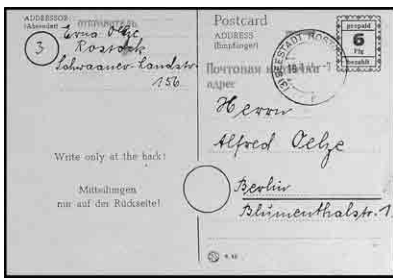 ADDRESSOR
(Absender)
ОТПРАВИТЕЛЬ
3
Erna Oelze
Rostock
Schwaaner-Landstr.
156
Write only at the back!
Mitteilungen
nur auf der Rückseite!
Postcard
ADDRESS
(Empfänger)
Почтовая
адрес
SEESTADT ROSTOCK
prepaid
6
Pfg
bezahlt
Herrn
Alfred Oelze
Berlin
Blumenthalstr. 1